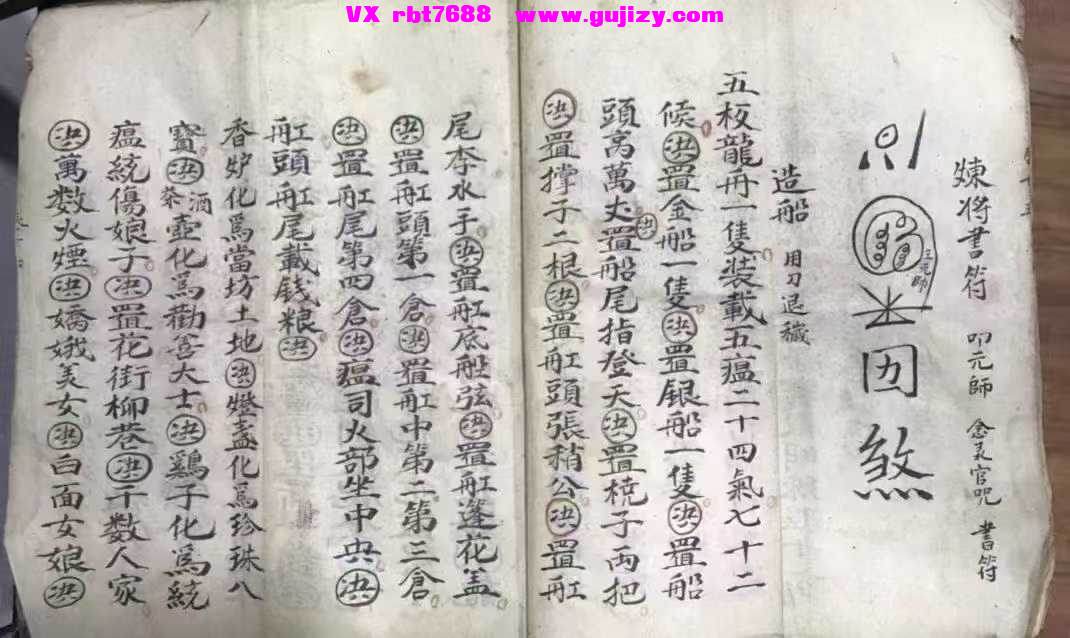 VX rbt7688 www.gujizy.com
煉将書符 叩元師 念天官咒 書符
囚煞
造船 用刀退穢
五板龍舟一隻裝載五瘟二十四氣七十二
候㊋置金船一隻洪置銀船一隻洪置船
頭高萬丈洪置船尾指登天洪置橈子両把
洪置撑子二根洪置舡頭張稍公洪置舡
尾李水手洪置舡底船弦洪置舡蓬花盖
洪置舡頭第一倉洪置舡中第二第三倉
洪置舡尾第四倉洪瘟司火部坐中央洪
舡頭舡尾載錢粮洪
香炉化爲當坊土地洪燈盞化爲珍珠八
寳洪茶酒壺化爲勸善大士洪鷄子化爲統
瘟統傷娘子洪置花街柳巷洪千数人家
洪萬数火煙洪嬌娥美女洪白面女娘洪